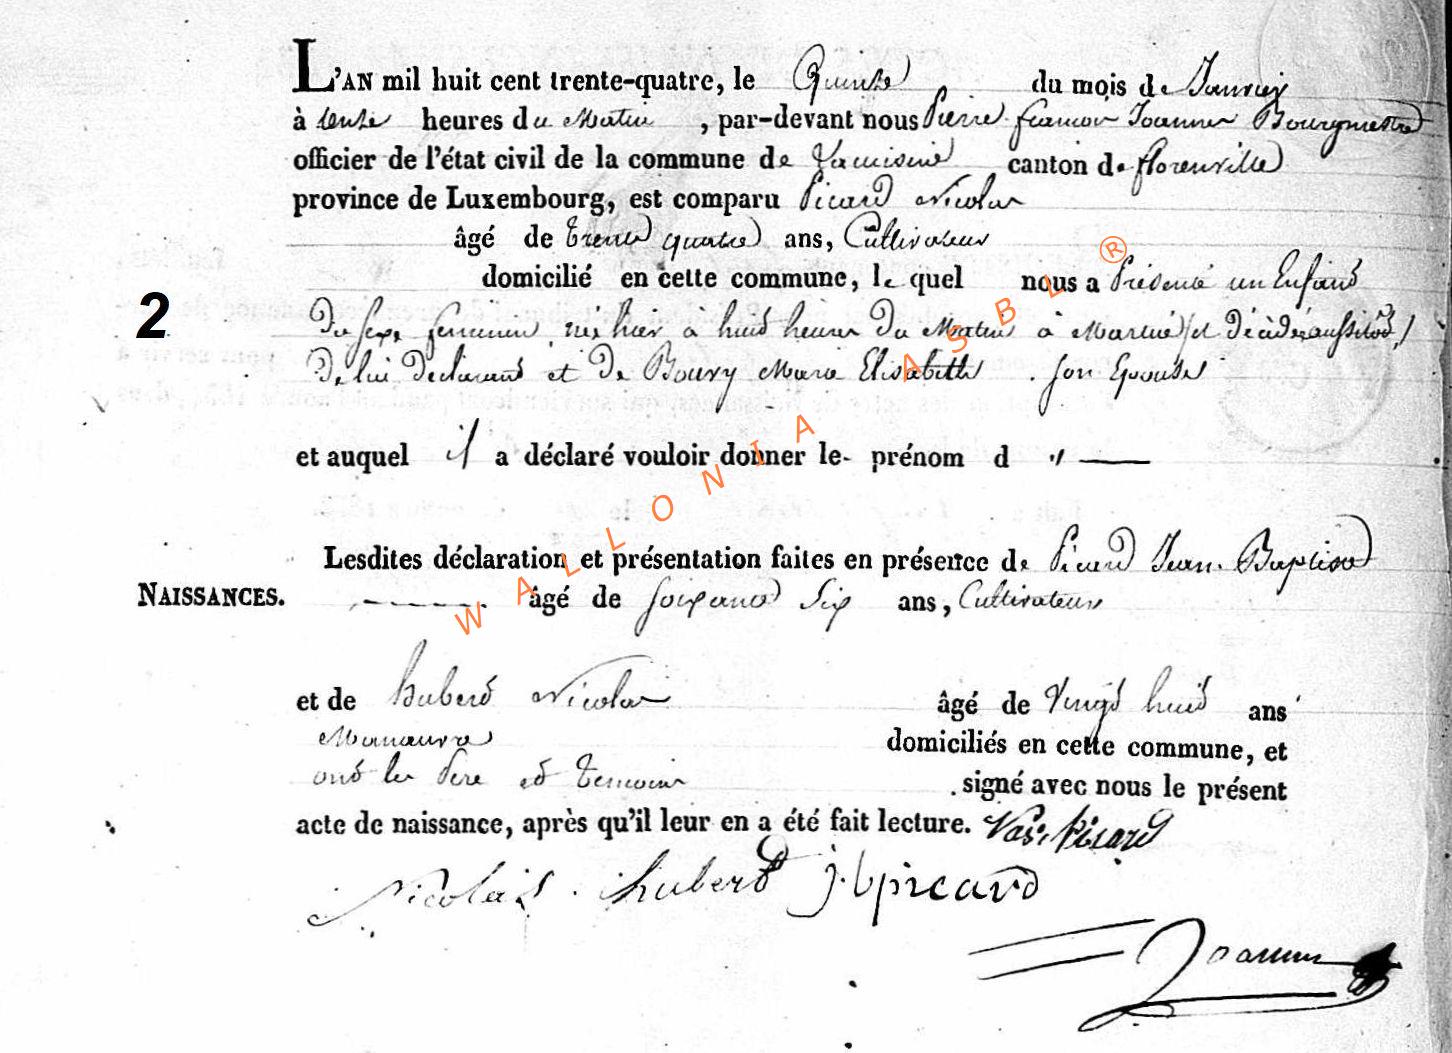 L'AN mil huit cent trente-quatre, le Quinze du mois de Janvier
à onze heures du Matin , par-devant nous Pierre francois Joannes Bourgmestre
officier de l'état civil de la commune de canton de florenville
province de Luxembourg, est comparu Picard Nicolas
âgé de trente quatre ans, Cultivateur
domicilié en cette commune, le quel nous a Présenté un Enfant
2
Du sexe feminin, née hier à huit heures Du Matin à Martué (et décédé aussitôt,)
De lui declarant et de Bouvy Marie Elisabeth . son Epouse
et auquel il a déclaré vouloir donner le- prénom d " —
Lesdites déclaration et présentation faites en présence de Picard Jean Baptiste
NAISSANCES.
âgé de soixante Six ans, Cultivateur
et de hubert Nicolas âgé de vingt huit ans
Manœuvre domiciliés en cette commune, et
ont les Pere et temoins . signé avec nous le présent
acte de naissance, après qu'il leur en a été fait lecture. Picard
Nicolas . hubert j. bpicard
Joannes
WALLONIA ASBL ®